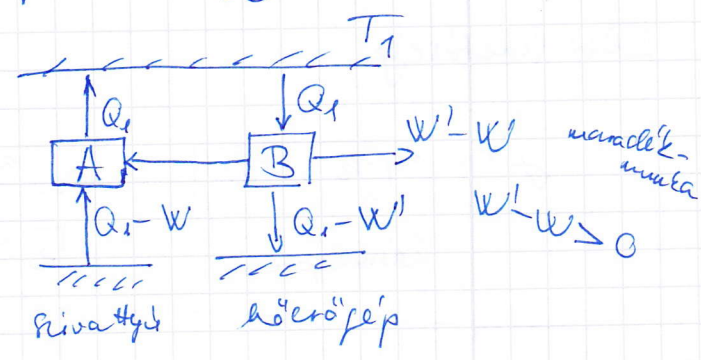 T₁
Q₁
Q₁
A
B
W' - W
maradék-
munka
Q₁ - W
Q₁ - W'
W' - W > 0
szivattyú
hőerőgép